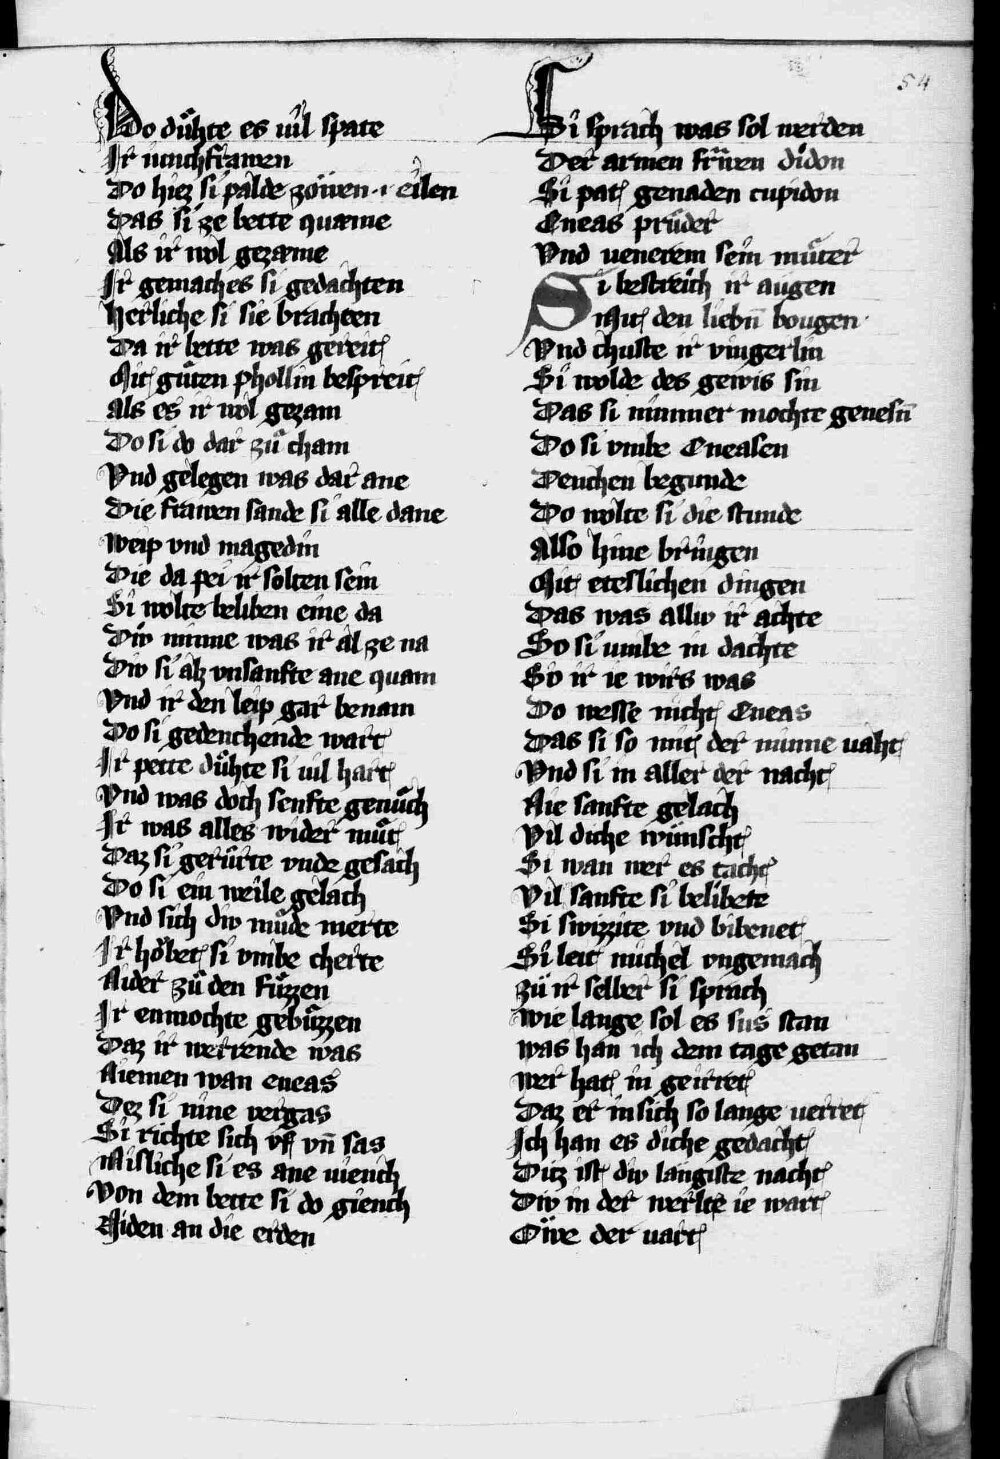 54
Do důhte es uil spate
Ir iunchfrawen
Do hiez si palde zöuuen · eilen
Das si ze bette quæme
Als ir wol gezæme
Ir gemaches si gedachten
Herliche si sie brachten
Da ir bette was gereit
Mit gůten phollin bespreit
Als es ir wol gezam
Do si do dar zů cham
Vnd gelegen was dar ane
Die frawen sande si alle dane
Weip vnd magedin
Die da pei ir solten sein
Si wolte beliben eine da
Diw minne was ir al ze na
Diw si alz vnsanfte ane quam
Vnd ir den leip gar benam
Do si gedenchende wart
Ir pette důhte si uil hart
Vnd was doch senfte genůch
Ir was alles wider můt
Daz si gerůrte vnde gesach
Do si ein weile gelach
Vnd sich diw můde merte
Ir höbet si vmbe cherte
Nider zů den fůzzen
Ir enmochte gebůzzen
Daz ir werrende was
Niemen wan eneas
Dez si nine vergas
Si richte sich vf vn̄ sas
Misliche si es ane uiench
Von dem bette si do giench
Niden an die erden
Si sprach was sol werden
Der armen frůwen didon
Si pat genaden cupidon
Eneas průder
Vnd uenerem sein můter
Si bestreich ir augen
Mit den liebn̄ bougen
Vnd chuste ir vingerlin
Si wolde des gewis sin
Das si nimmer mochte genesn̄
Do si vmbe Eneasen
Denchen begunde
Do wolte si die stunde
Also hine bringen
Mit eteslichen dingen
Das was alliv ir achte
So si umbe in dachte
So ir ie wirs was
Do wesse nicht Eneas
Das si so mit der minne uaht
Vnd si in aller der nacht
Nie sanfte gelach
Vil diche wůnscht
Si wan wer es tacht
Vil sanfte si belibete
Si swizzite vnd bibenet
Si leit michel vngemach
Zů ir selber si sprach
Wie lange sol es sus stan
Was han ich dem tage getan
Wer hat in geirret
Daz er in sich so lange uerret
Ich han es diche gedacht
Ditz ist diw langiste nacht
Diw in der werlte ie wart
Öwe der uart